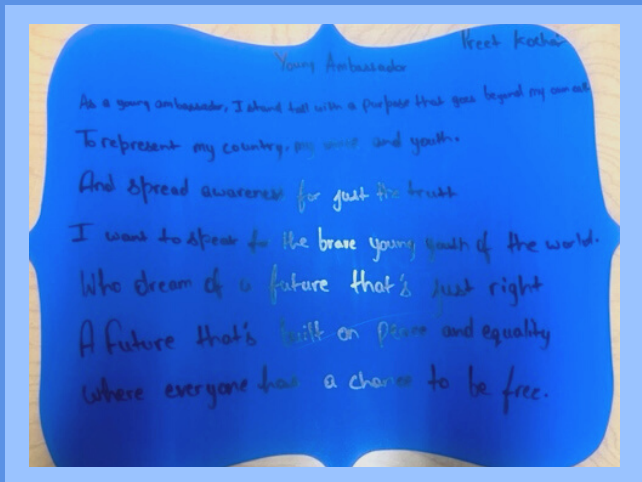 Preet Kochar
Young Ambassador
As a young ambassador, I stand tall with a purpose that goes beyond my own call
To represent my country, my and youth.
And spread awareness for just the truth
I want to speak for the brave young youth of the world.
Who dream of a future that's just right
A future that's built on peace and equality
where everyone has a chance to be free.